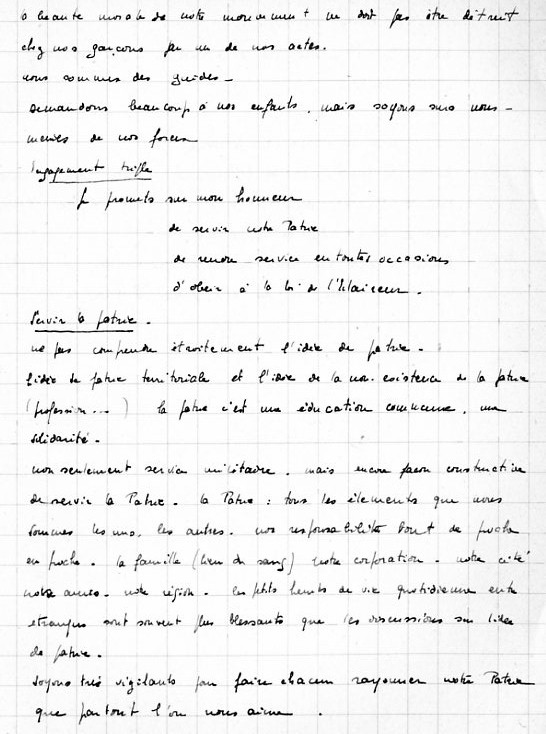 la beauté morale de notre mouvement ne doit pas être détruit
chez nos garçons par un de nos actes.
nous sommes des guides -
Demandons beaucoup à nos enfants, mais soyons surs nous -
mêmes de nos forces
Engagement triple
Je promets sur mon honneur
de servir notre Patrie
de rendre service en toutes occasions
d'obeir à la loi de l'Eclaireur.
Servir la patrie.
ne pas comprendre étroitement l'idée de patrie -
L'idée de patrie territoriale et l'idée de la non. existence de la patrie
(profession...) la patrie c'est une éducation commune, une
solidarité.
non seulement service militaire, mais encore façon constructive
de servir la Patrie - la Patrie : tous les élements que nous
sommes les uns, les autres. nos responsabilité vont de proche
en proche. la famille (lien du sang) notre corporation - notre cité
notre région - les petits heurts de vie quotidienne entre
etrangers sont souvent plus blessants que les discussions sur l'idée
de patrie.
Soyons très vigilants pour faire chacun rayonner notre Patrie
que partout l'on nous aime.